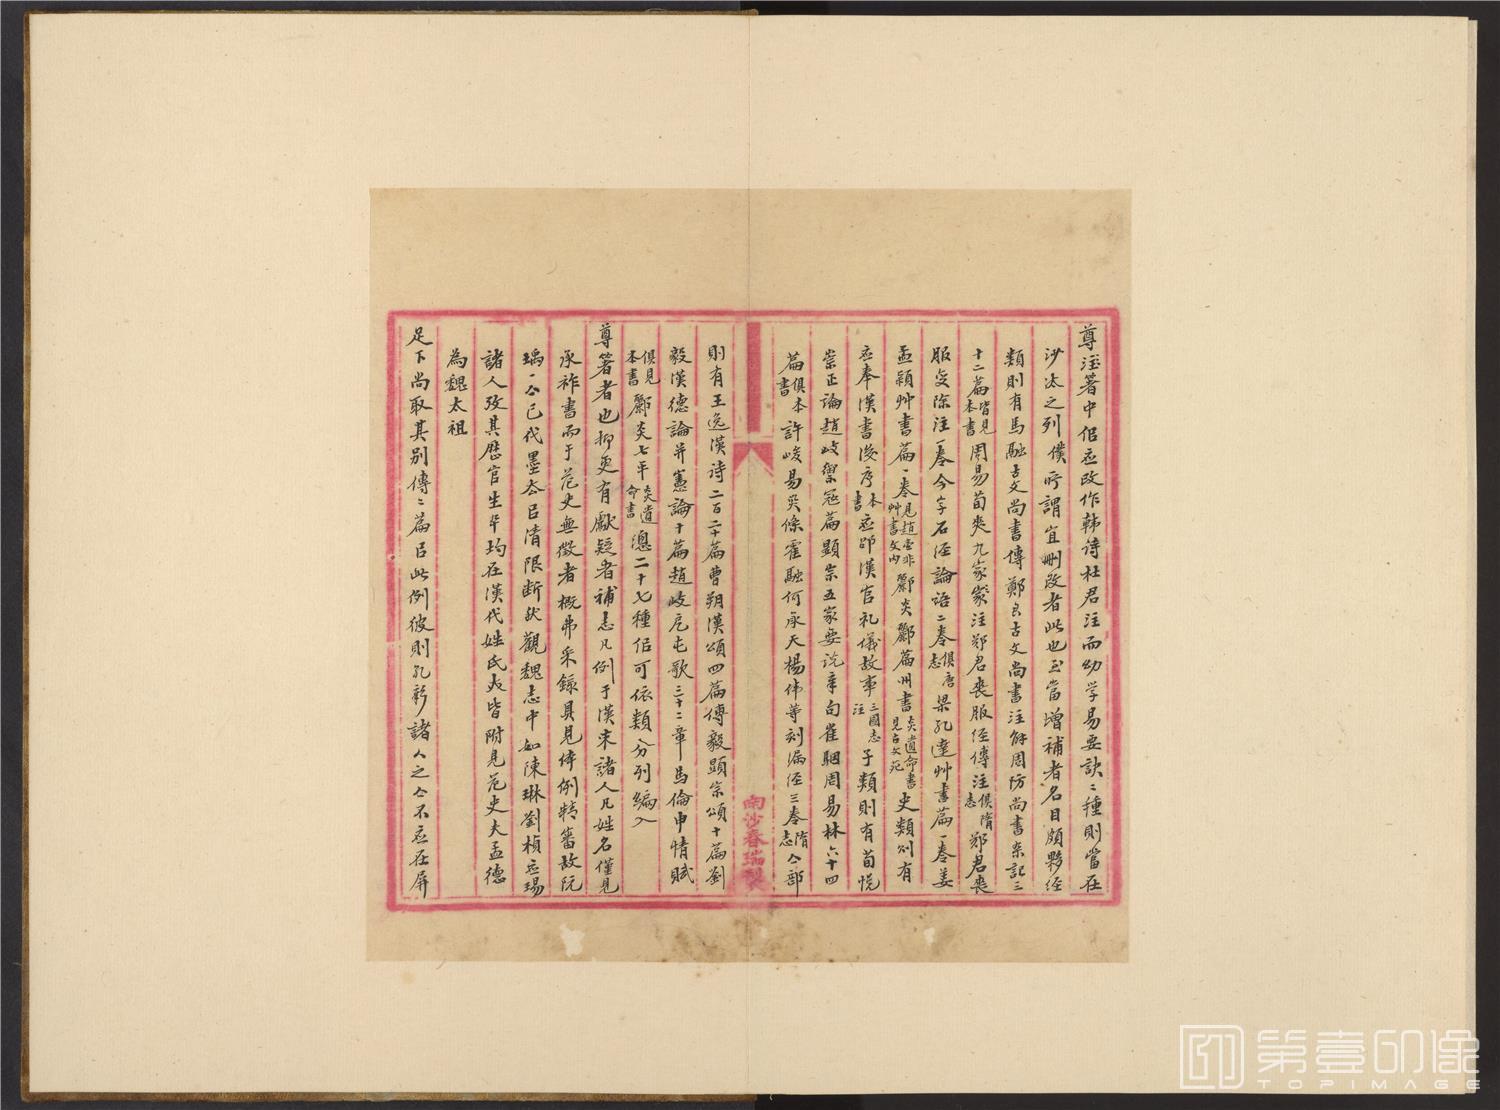 尊注著中侣应改作韩诗杜君注而幼学易要訣二種則當在
沙汰之列僕所謂宜刪改者此也至當增補者名目頗夥经
類則有馬融古文尚書傳鄭氏古文尚書注解周防尚書杂記三
十二篇皆見本書周易荀爽九家注郑君丧服经傳注俱隋志郑君喪
服变除注一卷今字石经論语二卷俱唐志梁孔達艸書篇一卷姜
孟颖艸書篇一卷見趙壹非艸書文内酈炎酈篇州書炎遺命書見古文苑史類则有
应奉漢書後序本書应卲漢官礼儀故事三國志注子類則有荀悦
崇正論趙岐禦寇篇顯宗五家要说章句崔駰周易林六十四
篇俱本書許峻易災條霍融何承天楊偉等刻漏经三卷隋志仝部
則有王逸漢诗二百二十篇曹朔漢頌四篇傅毅顕宗頌十篇劉
毅漢德論并憲論十篇趙岐厄屯歌二十三章馬倫申情賦
俱見本書酈炎七平炎遺命書總二十七種侣可依類分列编入
尊著者也抑更有獻疑者補志凡例于漢末諸人凡姓名僅見
承祚書而于范史無徵者概弗采錄具見体例精審故阮
瑀亽已代墨夲㠯清限断肰觀魏志中如陳琳劉楨应瑒
諸人攷其歷官生卒均在漢代姓氏㚑皆附見范史夫孟德
為魏太祖
足下尚取其别傳二篇㠯此例彼則孔彰諸人之亽不应在屏
南沙春瑞製
第壹印像
TOPIMAGE